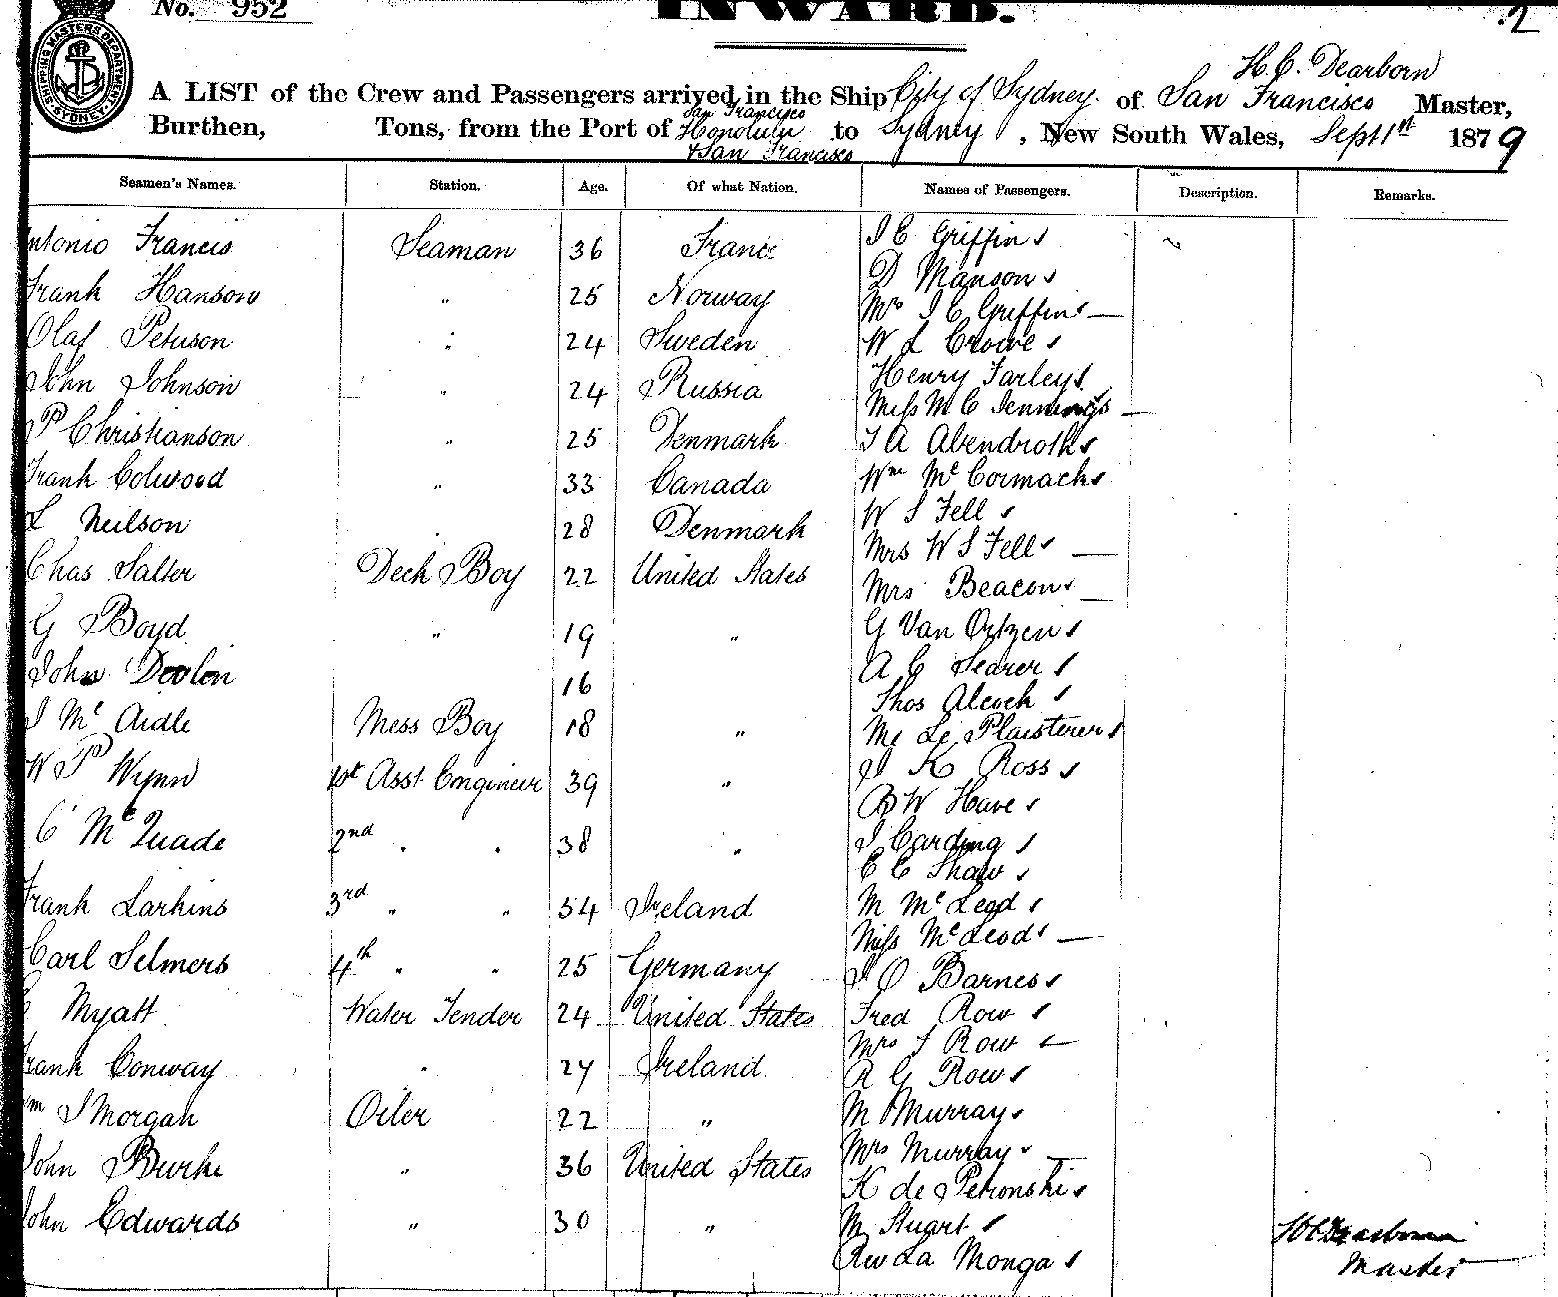 No. 952
INWARD.
2
SHIPPING MASTERS DEPARTMENT
SYDNEY
H. C. Dearborn
A LIST of the Crew and Passengers arrived in the Ship City of Sydney of San Francisco Master,
San Francisco
Burthen, Tons, from the Port of Honolulu to Sydney, New South Wales, Sept 1st 1879
& San Francisco
Seamen's Names. Station. Age. Of what Nation. Names of Passengers. Description. Remarks.
ntonio Francis Seaman 36 France
Frank Hanson " 25 Norway
Olaf Peterson " 24 Sweden
John Johnson " 24 Russia
P Christianson " 25 Denmark
Frank Colwood " 33 Canada
L Neilson " 28 Denmark
Chas Salter Deck Boy 22 United States
G Boyd " 19 "
John Devlin 16
J Mc Ardle Mess Boy 18 "
W P Wynn 1st Asst Engineer 39 "
C Mc Quade 2nd " " 38 "
Frank Larkins 3rd " " 54 Ireland
Carl Selmers 4th " " 25 Germany
Myatt Water Tender 24 United States
Frank Conway " 27 Ireland
Wm J Morgan Oiler 22 "
John Burke " 36 United States
John Edwards " 30 "
J C Griffin
D Manson
Mrs J C Griffin
W L Crowe
Henry Farley
Miss M C Jennings
T A Abendroth
Wm Mc Cormack
W S Fell
Mrs W S Fell
Mrs Beacon
G Van Ortzen
A C Searer
Thos Alcock
Mr Le Plaisterer
J K Ross
B W Have
J Carding
C C Shaw
M Mc Leod
Miss Mc Leod
J O Barnes
Fred Row
Mrs F Row
R G Row
M Murray
Mrs Murray
K de Petronski
M Stuart
Rev La Monga
H C Dearborn
Master